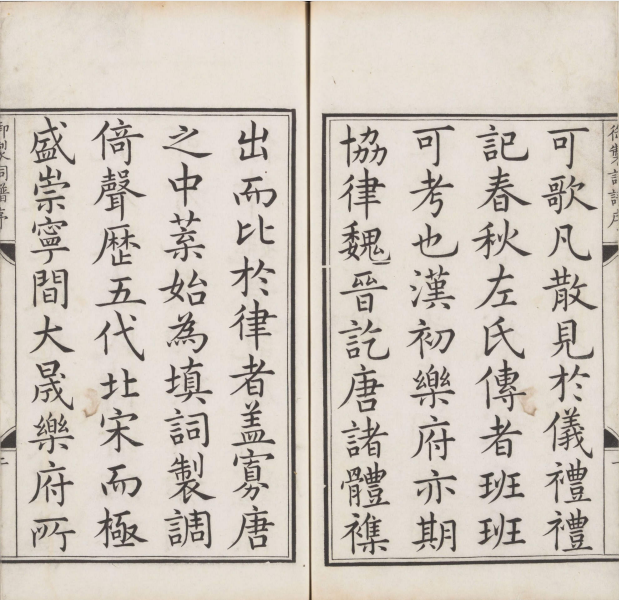 御製詞譜序
可歌凡散見於儀禮禮
記春秋左氏傳者班班
可考也漢初樂府亦期
協律魏晉訖唐諸體襍
出而比於律者葢寡唐
之中葉始為填詞製調
倚聲歷五代北宋而極
盛崇寧間大晟樂府所
御製詞譜序